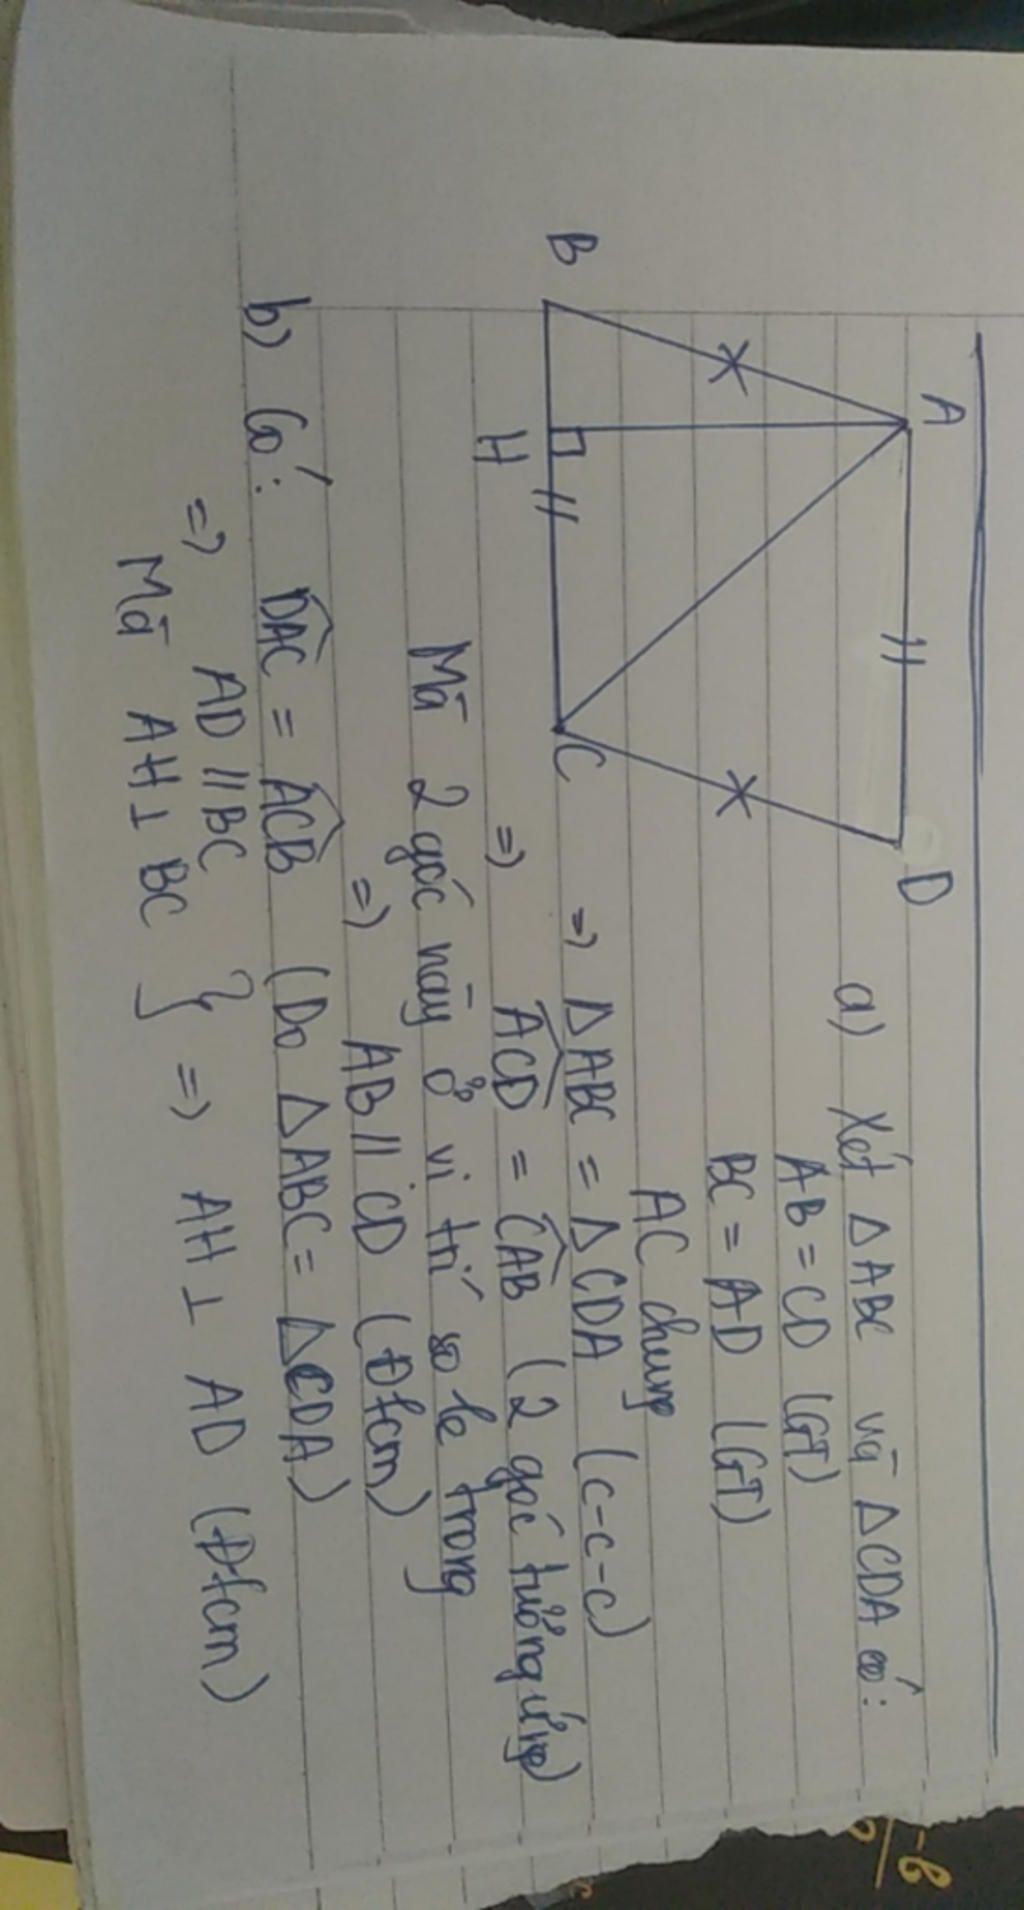 A
D
B
H
C
a) Xét ΔABC và ΔCDA có:
AB = CD (GT)
BC = AD (GT)
AC chung
=> ΔABC = ΔCDA (c-c-c)
=> \widehat{ACD} = \widehat{CAB} (2 góc tương ứng)
Mà 2 góc này ở vị trí so le trong
=> AB // CD (Đfcm)
b) Có: \widehat{DAC} = \widehat{ACB} (Do ΔABC = ΔCDA)
=> AD // BC
Mà AH ⊥ BC } => AH ⊥ AD (Đfcm)